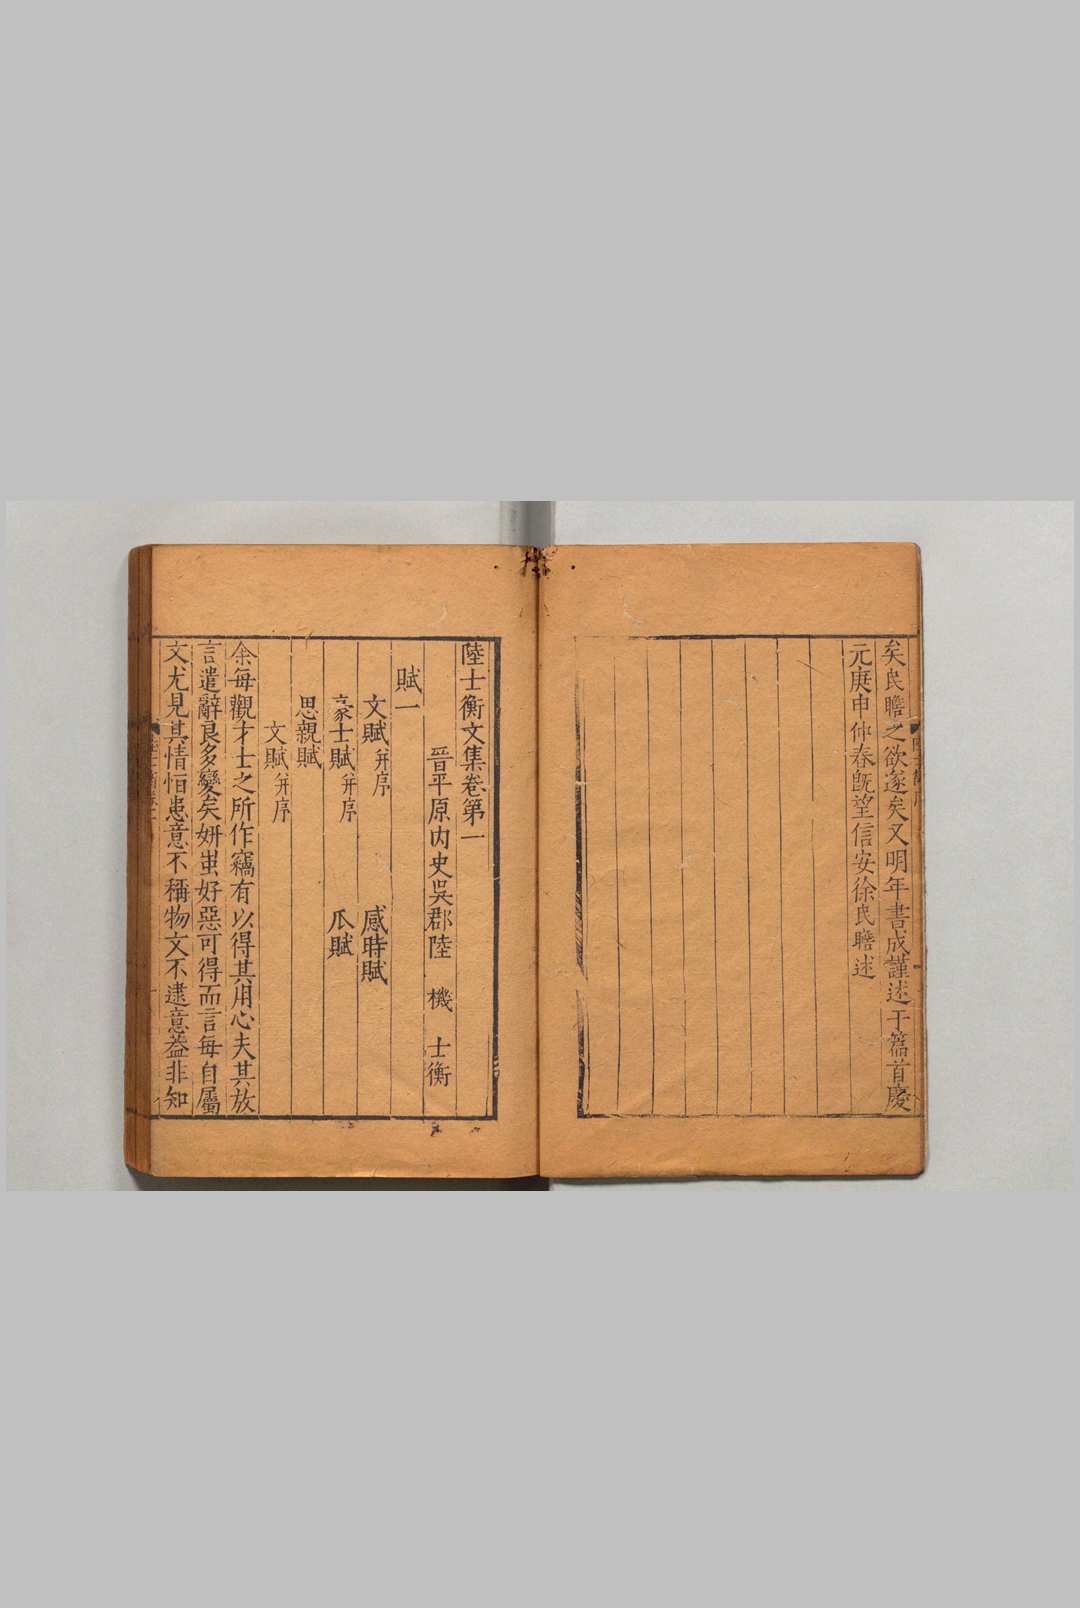 矣民瞻之欲遂矣又明年書成謹述于篇首慶
元庚申仲春既望信安徐民瞻述
陸士衡文集卷第一
晉平原内史吳郡陸機士衡
賦一
文賦并序 感時賦
豪士賦并序 瓜賦
思親賦
文賦并序
余每觀才士之所作竊有以得其用心夫其放
言遣辭良多變矣妍蚩好惡可得而言每自屬
文尤見其情恒患意不稱物文不逮意蓋非知